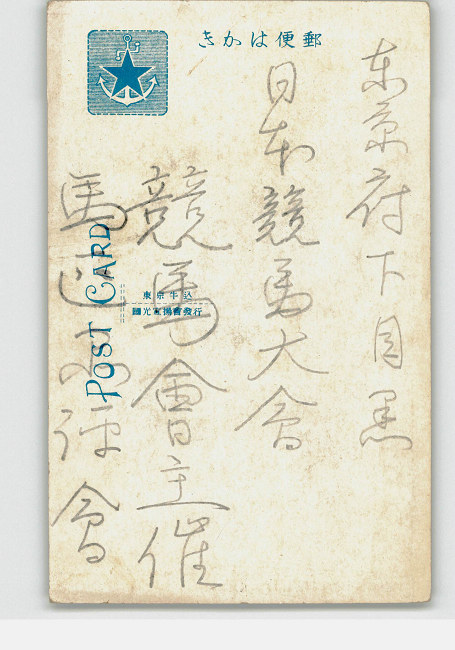 郵便はかき
東京府下目黒
日本競馬大會
競馬會主催
馬匹品評會
POST CARD
東京牛込
國光宣揚會發行